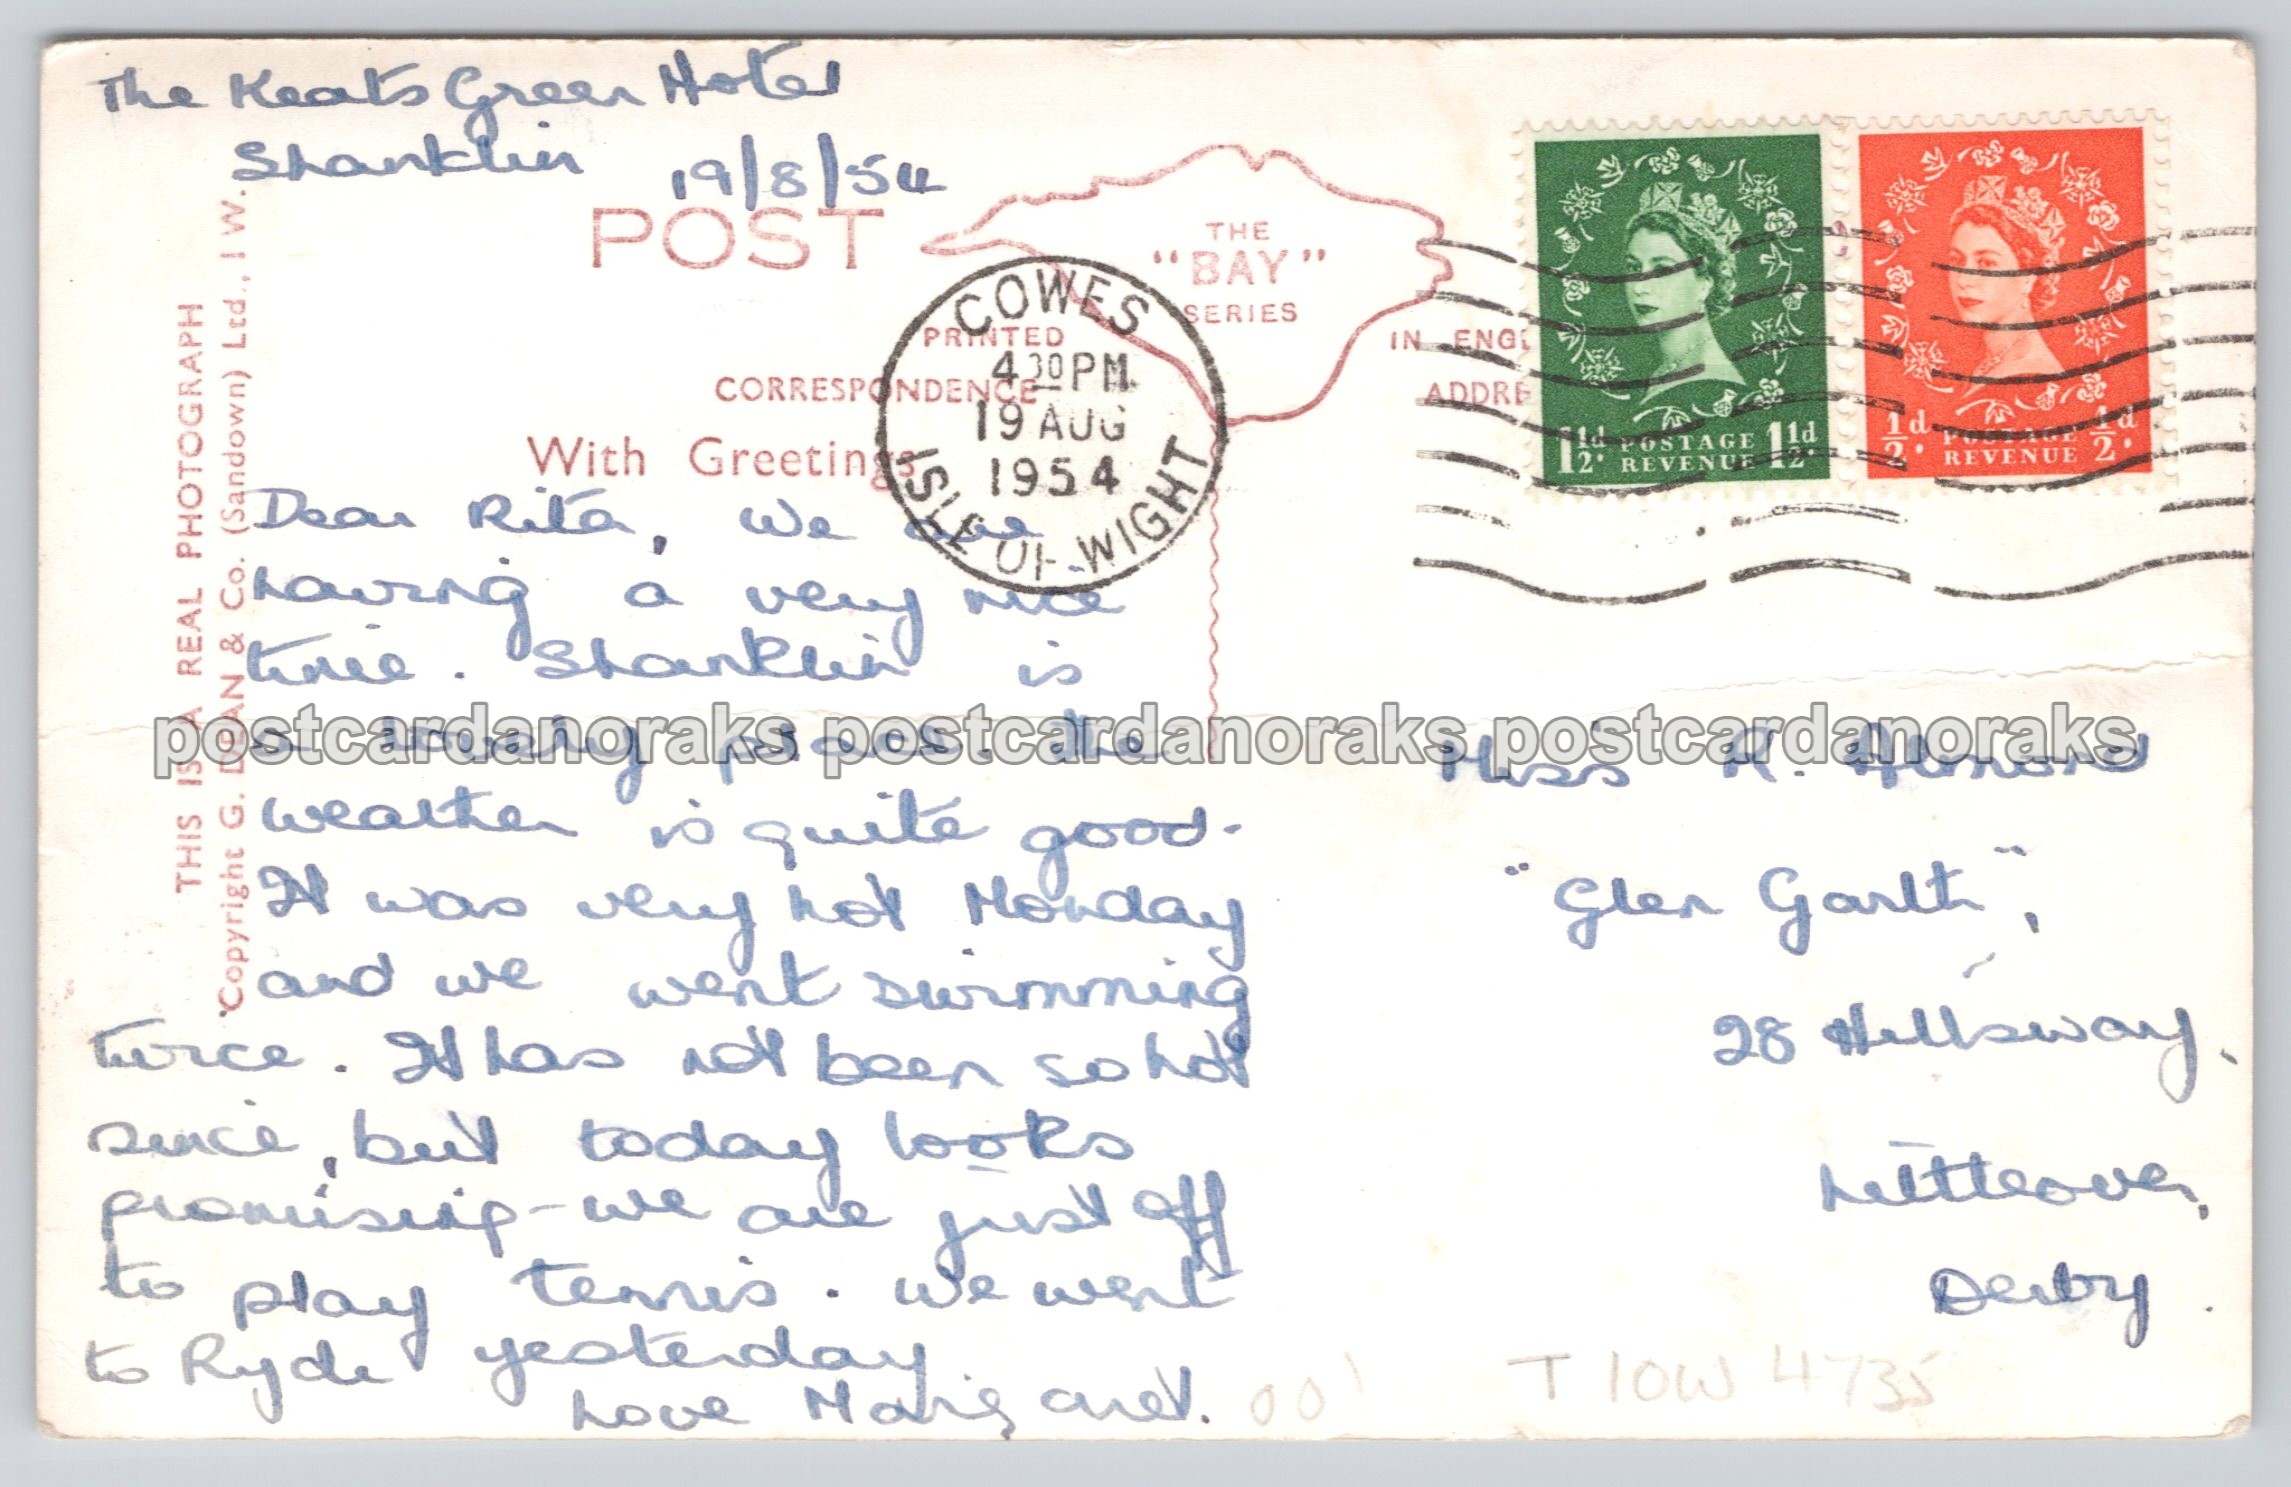 The Keats Green Hotel
Shanklin
19/8/54
POST
THE
"BAY"
SERIES
PRINTED IN ENGL
CORRESPONDENCE
ADDRE
With Greetings
COWES
4 30 PM
19 AUG
1954
ISLE OF WIGHT
1½d. POSTAGE REVENUE 1½d.
½d. POSTAGE REVENUE ½d.
THIS IS A REAL PHOTOGRAPH
Copyright G. DEAN & Co. (Sandown) Ltd., I W.
Dear Rita, We are
having a very nice
time. Shanklin is
a lovely place. The
weather is quite good.
It was very hot Monday
and we went swimming
twice. It has not been so hot
since, but today looks
promising - we are just off
to play tennis. We went
to Ryde yesterday
Love Margaret.
Miss R.
"Glen Garth",
28 Hillsway,
Littleover,
Derby.
T IOW 4735
postcardanoraks postcardanoraks postcardanoraks